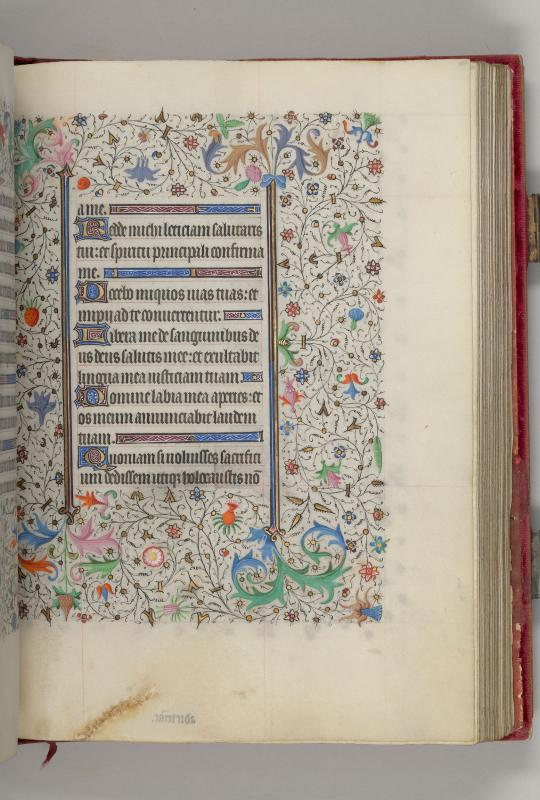 a me.
Redde michi leticiam salutaris
tui: et spiritu principali confirma
me.
Docebo iniquos uias tuas: et
impii ad te conuertentur.
Libera me de sanguinibus de
us deus salutis mee: et exultabit
lingua mea iusticiam tuam.
Domine labia mea aperies: et
os meum annunciabit laudem
tuam.
Quoniam si uoluisses sacrifici
um dedissem utiqz holocaustis nō